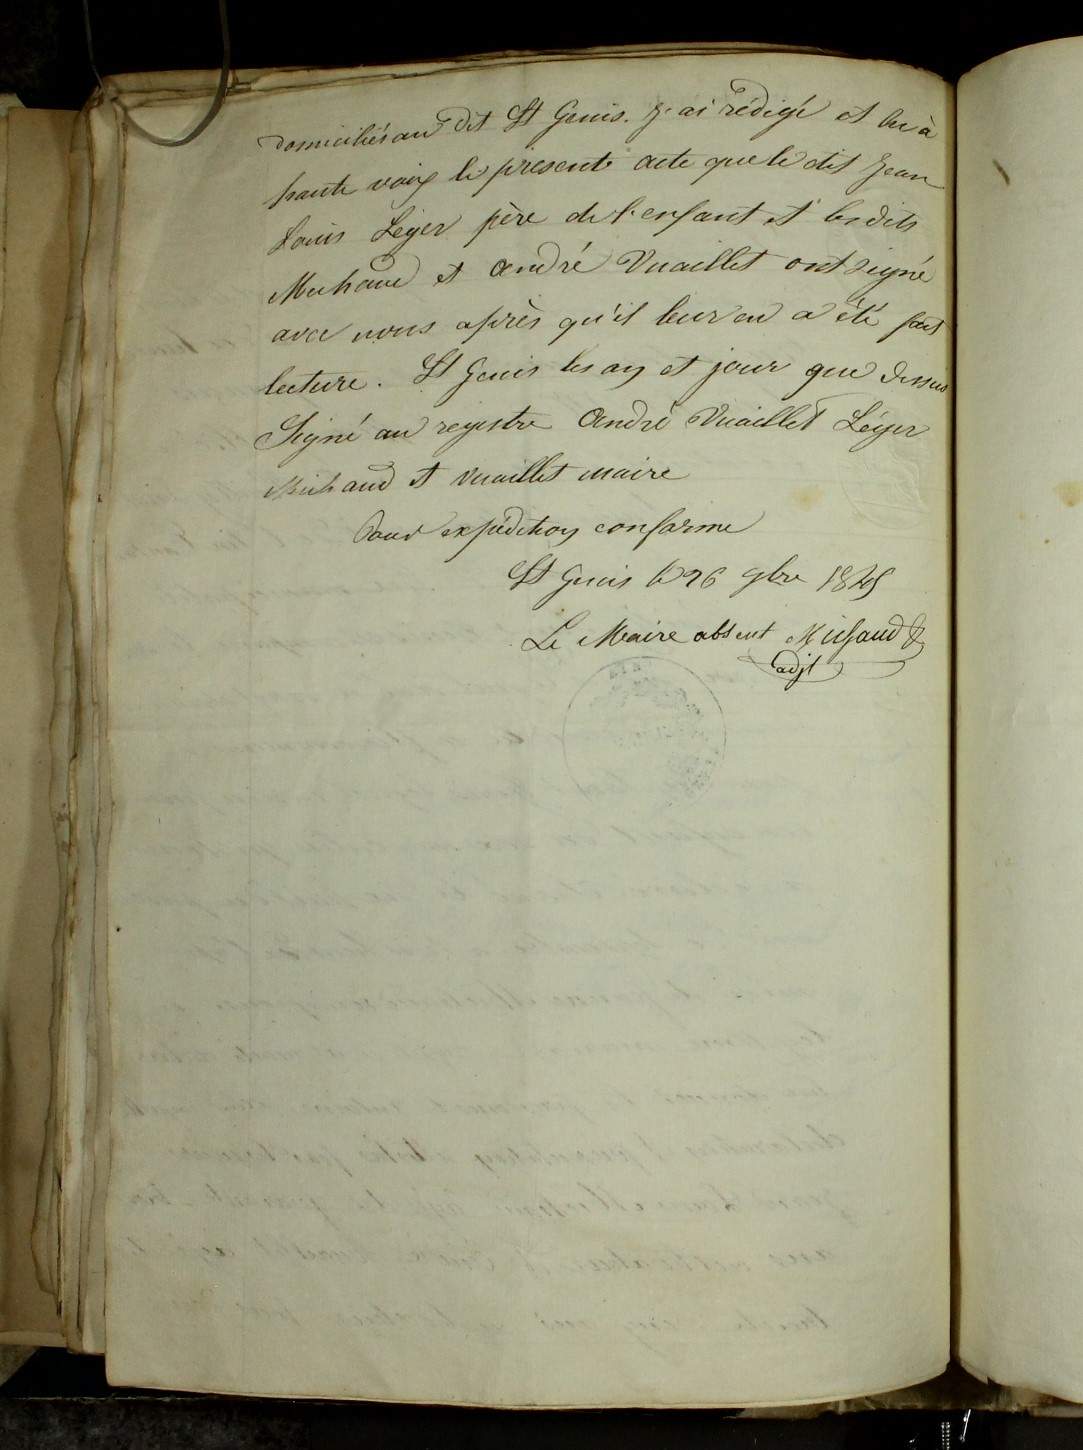 domiciliés au dit St Genis. J'ai rédigé et lu à
haute voix le présente acte que le dit Jean
Louis Léger père de l'enfant et les dits
Michaud et André Vuaillet ont signé
avec nous après qu'il leur en a été fait
lecture. St Genis les an et jour que dessus
Signé au registre André Vuaillet Léger
Michaud et Vuaillet maire
Pour expédition conforme
St Genis le 26 9bre 1845
Le Maire absent Michaud
adjt